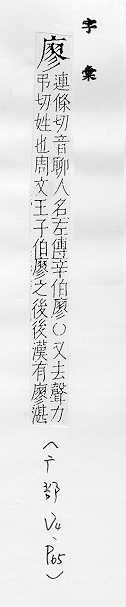 字彙
廖
連條切音聊人名左傳辛伯廖〇又去聲力
弔切姓也周文王子伯廖之後後漢有廖湛
(广部 V4、P65)